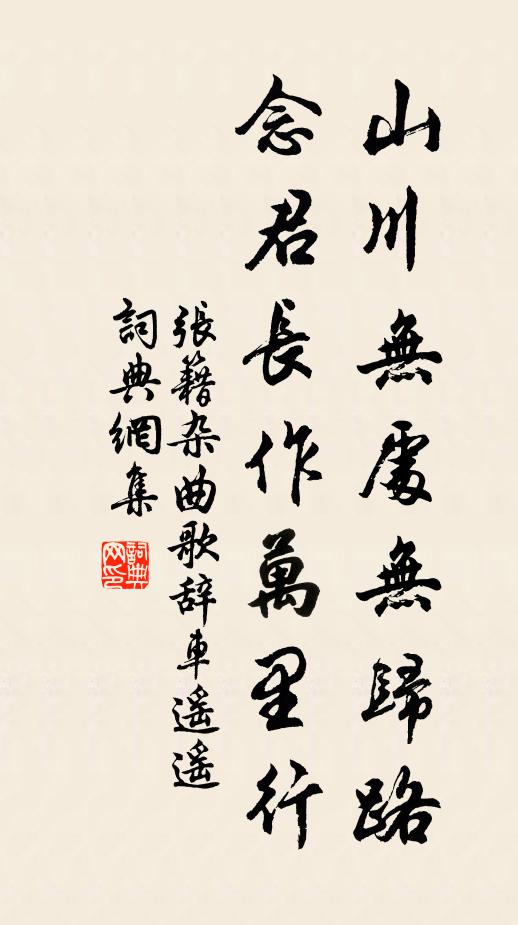 山川無處無歸路
念君長作萬里行
張籍杂曲歌辞車遥遥
詞典網集
詞典网印